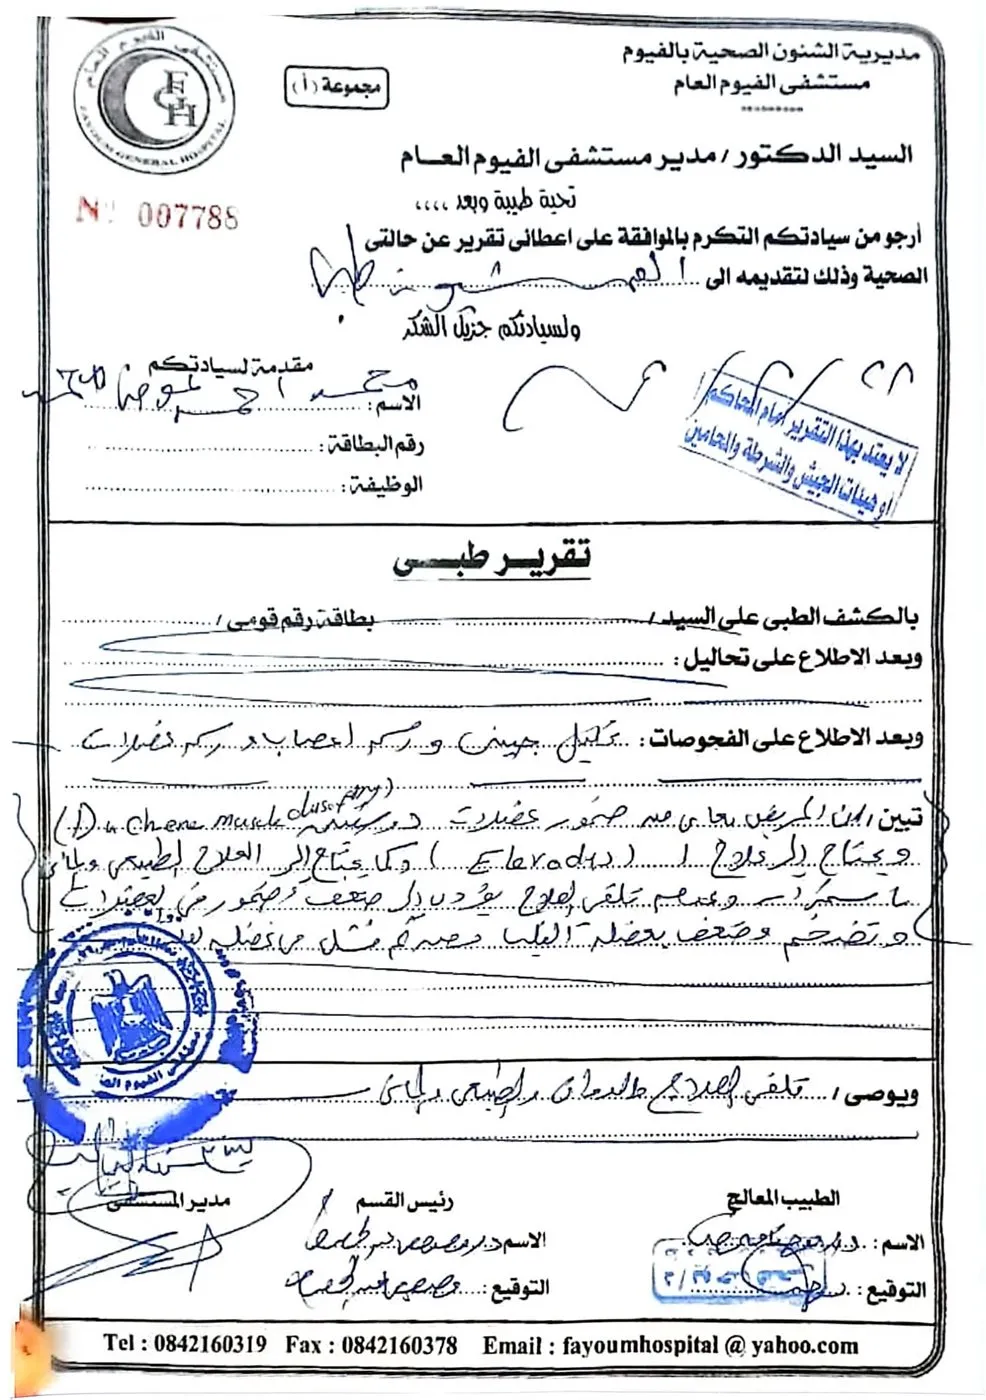 مديرية الشئون الصحية بالفيوم
مستشفى الفيوم العام
مجموعة (أ)
مستشفى الفيوم العام
FGH
FAYOUM GENERAL HOSPITAL
السيد الدكتور / مدير مستشفى الفيوم العـام
تحية طيبة وبعد ،،،،
Nº 007788
أرجو من سيادتكم التكرم بالموافقة على اعطائى تقرير عن حالتى
الصحية وذلك لتقديمه الى
ولسيادتكم جزيل الشكر
مقدمة لسيادتكم
الاسم : محمد احمد
رقم البطاقة :
الوظيفة :
لا يعتد بهذا التقرير أمام المحاكم
أو هيئات الجيش والشرطة والمحامين
تقرير طبى
بالكشف الطبى على السيد / بطاقة رقم قومى /
وبعد الاطلاع على تحاليل :
وبعد الاطلاع على الفحوصات : تحليل جينى و رسم اعصاب و رسم عضلات
تبين ان المريض يعانى من ضمور عضلات دوشين (Duchene muscle dystrophy)
و يحتاج إلى علاج ( Elevadys ) وكما يحتاج إلى العلاج الطبيعى و
باستمرار وعدم تلقى العلاج يؤدى إلى ضعف وضمور فى العضلات
و وضعف بعضلة القلب فشل
ويوصى / تلقى العلاج الدوائى والطبيعى
الطبيب المعالج
رئيس القسم
مدير المستشفى
الاسم :
الاسم
التوقيع :
التوقيع :
Tel : 0842160319 Fax : 0842160378 Email : fayoumhospital @ yahoo.com